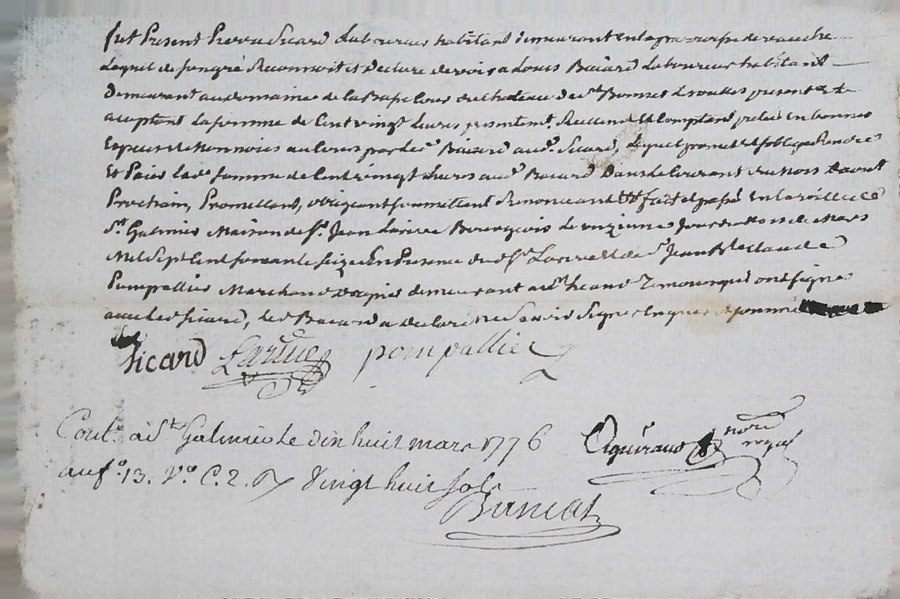 fut Present Pierre Sicard Laboureur habitant demeurant en la parroisse de
Lequel de son gré Reconnoit et Declare devoir a Louis Baiard Laboureur habitant
demeurant au domaine de la Basse Cour du Chateau de St Bonnet present et
aceptant La somme de Cent vingt Livres presentemt Recue Comptant en bonnes
Especes et Monnoies au Cours par led. Baiard aud. Sicard, Lequel promet et s'oblige Rendre
Et Paier lad. somme de Cent vingt Livres aud. Baiard Dans le Courant du Mois Davril
Prochain, Promettant, obligeant soumettant Renonceant &c fait et passé en la ville de
St Galmier Maison de Sr. Jean Larive Bourgeois Le onzieme Jour du Mois de Mars
Mil Sept Cent soixante Seize En Presence dud. Sr. Larive et de Sr Jean Claude
Pompallier Marchand demeurant aud. lieu temoins qui ont signé
avec led Sicard, led Baiard a declaré ne Savoir Signer Enquis et sommé
Sicard Larive pompallier
Contlé a St Galmier le dix huit mars 1776
au fo. 13. Vo. C. 2. R/ vingt huit sols
nore royal